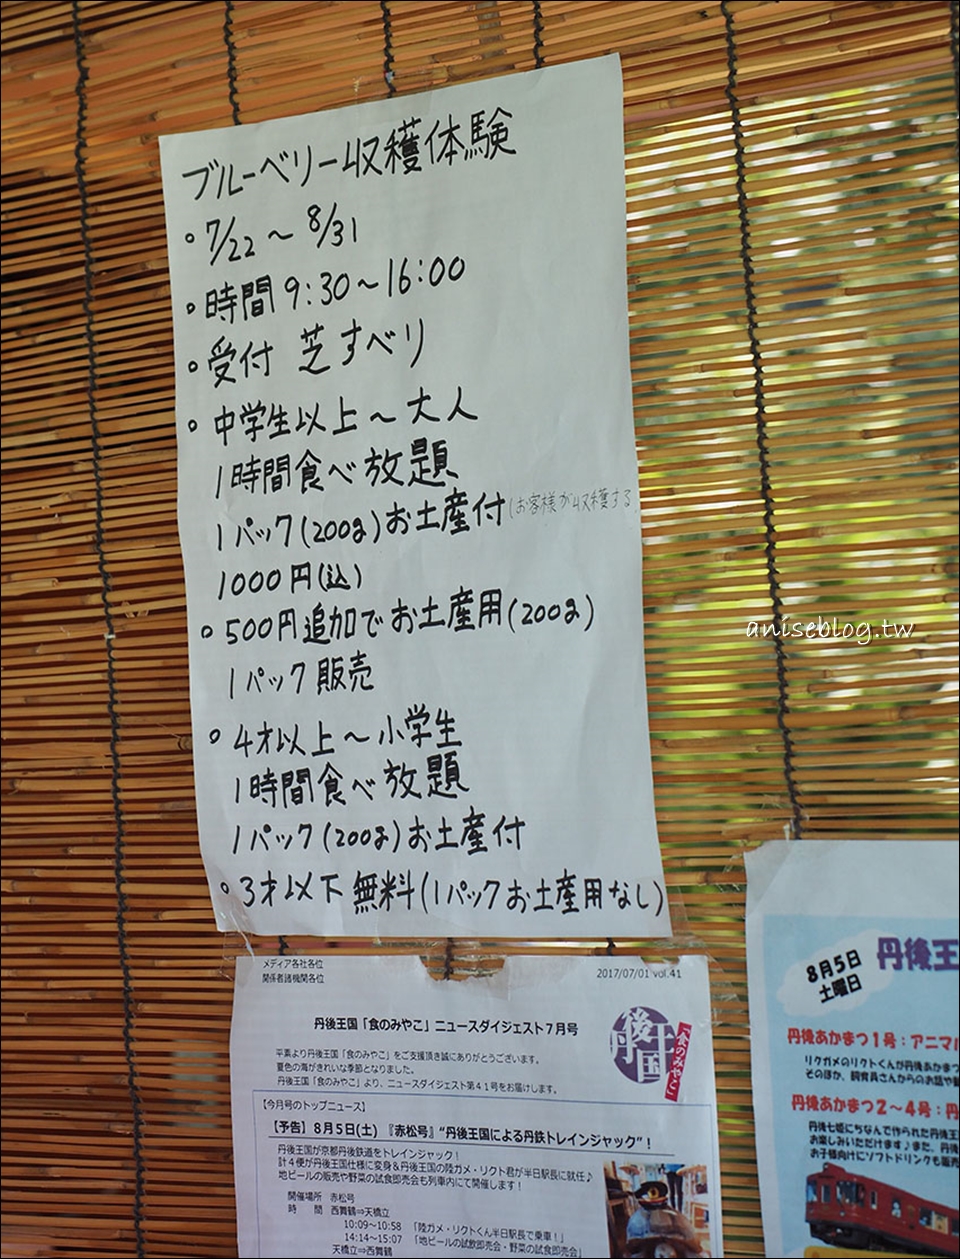 ブルーベリー収穫体験
。7/22～8/31
。時間 9:30～16:00
。受付 芝すべり
。中学生以上～大人
1時間食べ放題
1パック(200g)お土産付(お客様が収穫する
1000円(込)
。500円追加でお土産用(200g)
1パック販売
。4才以上～小学生
1時間食べ放題
1パック(200g)お土産付
。3才以下 無料(1パックお土産用なし)
aniseblog.tw
メディア各社各位
関係者諸機関各位
2017/07/01 vol.41
丹後王国「食のみやこ」ニュースダイジェスト7月号
丹後王国
「食のみやこ」
平素より丹後王国「食のみやこ」をご支援頂き誠にありがとうございます。
夏色の海がきれいな季節となりました。
丹後王国「食のみやこ」より、ニュースダイジェスト第41号をお届けします。
【今月号のトップニュース】
【予告】8月5日(土) 『赤松号』“丹後王国による丹鉄トレインジャック”！
丹後王国が京都丹後鉄道をトレインジャック！
計4便が丹後王国仕様に変身＆丹後王国の陸ガメ・リクト君が半日駅長に就任♪
地ビールの販売や野菜の試食即売会も列車内にて開催します！
開催場所 赤松号
時 間 西舞鶴⇒天橋立
10:09～10:58 「陸ガメ・リクトくん半日駅長で乗車！」
14:14～15:07 「地ビールの試飲即売会・野菜の試食即売会」
天橋立⇒西舞鶴
8月5日
土曜日
丹後王
丹後あかまつ1号：アニマル
リクガメのリクトくんが丹後あかまつ
そのほか、飼育員さんからのお話や
丹後あかまつ2～4号：丹
丹後七姫にちなんで作られた丹後王
お楽しみいただけます♪また、丹後
お子様向けにソフトドリンクも販売